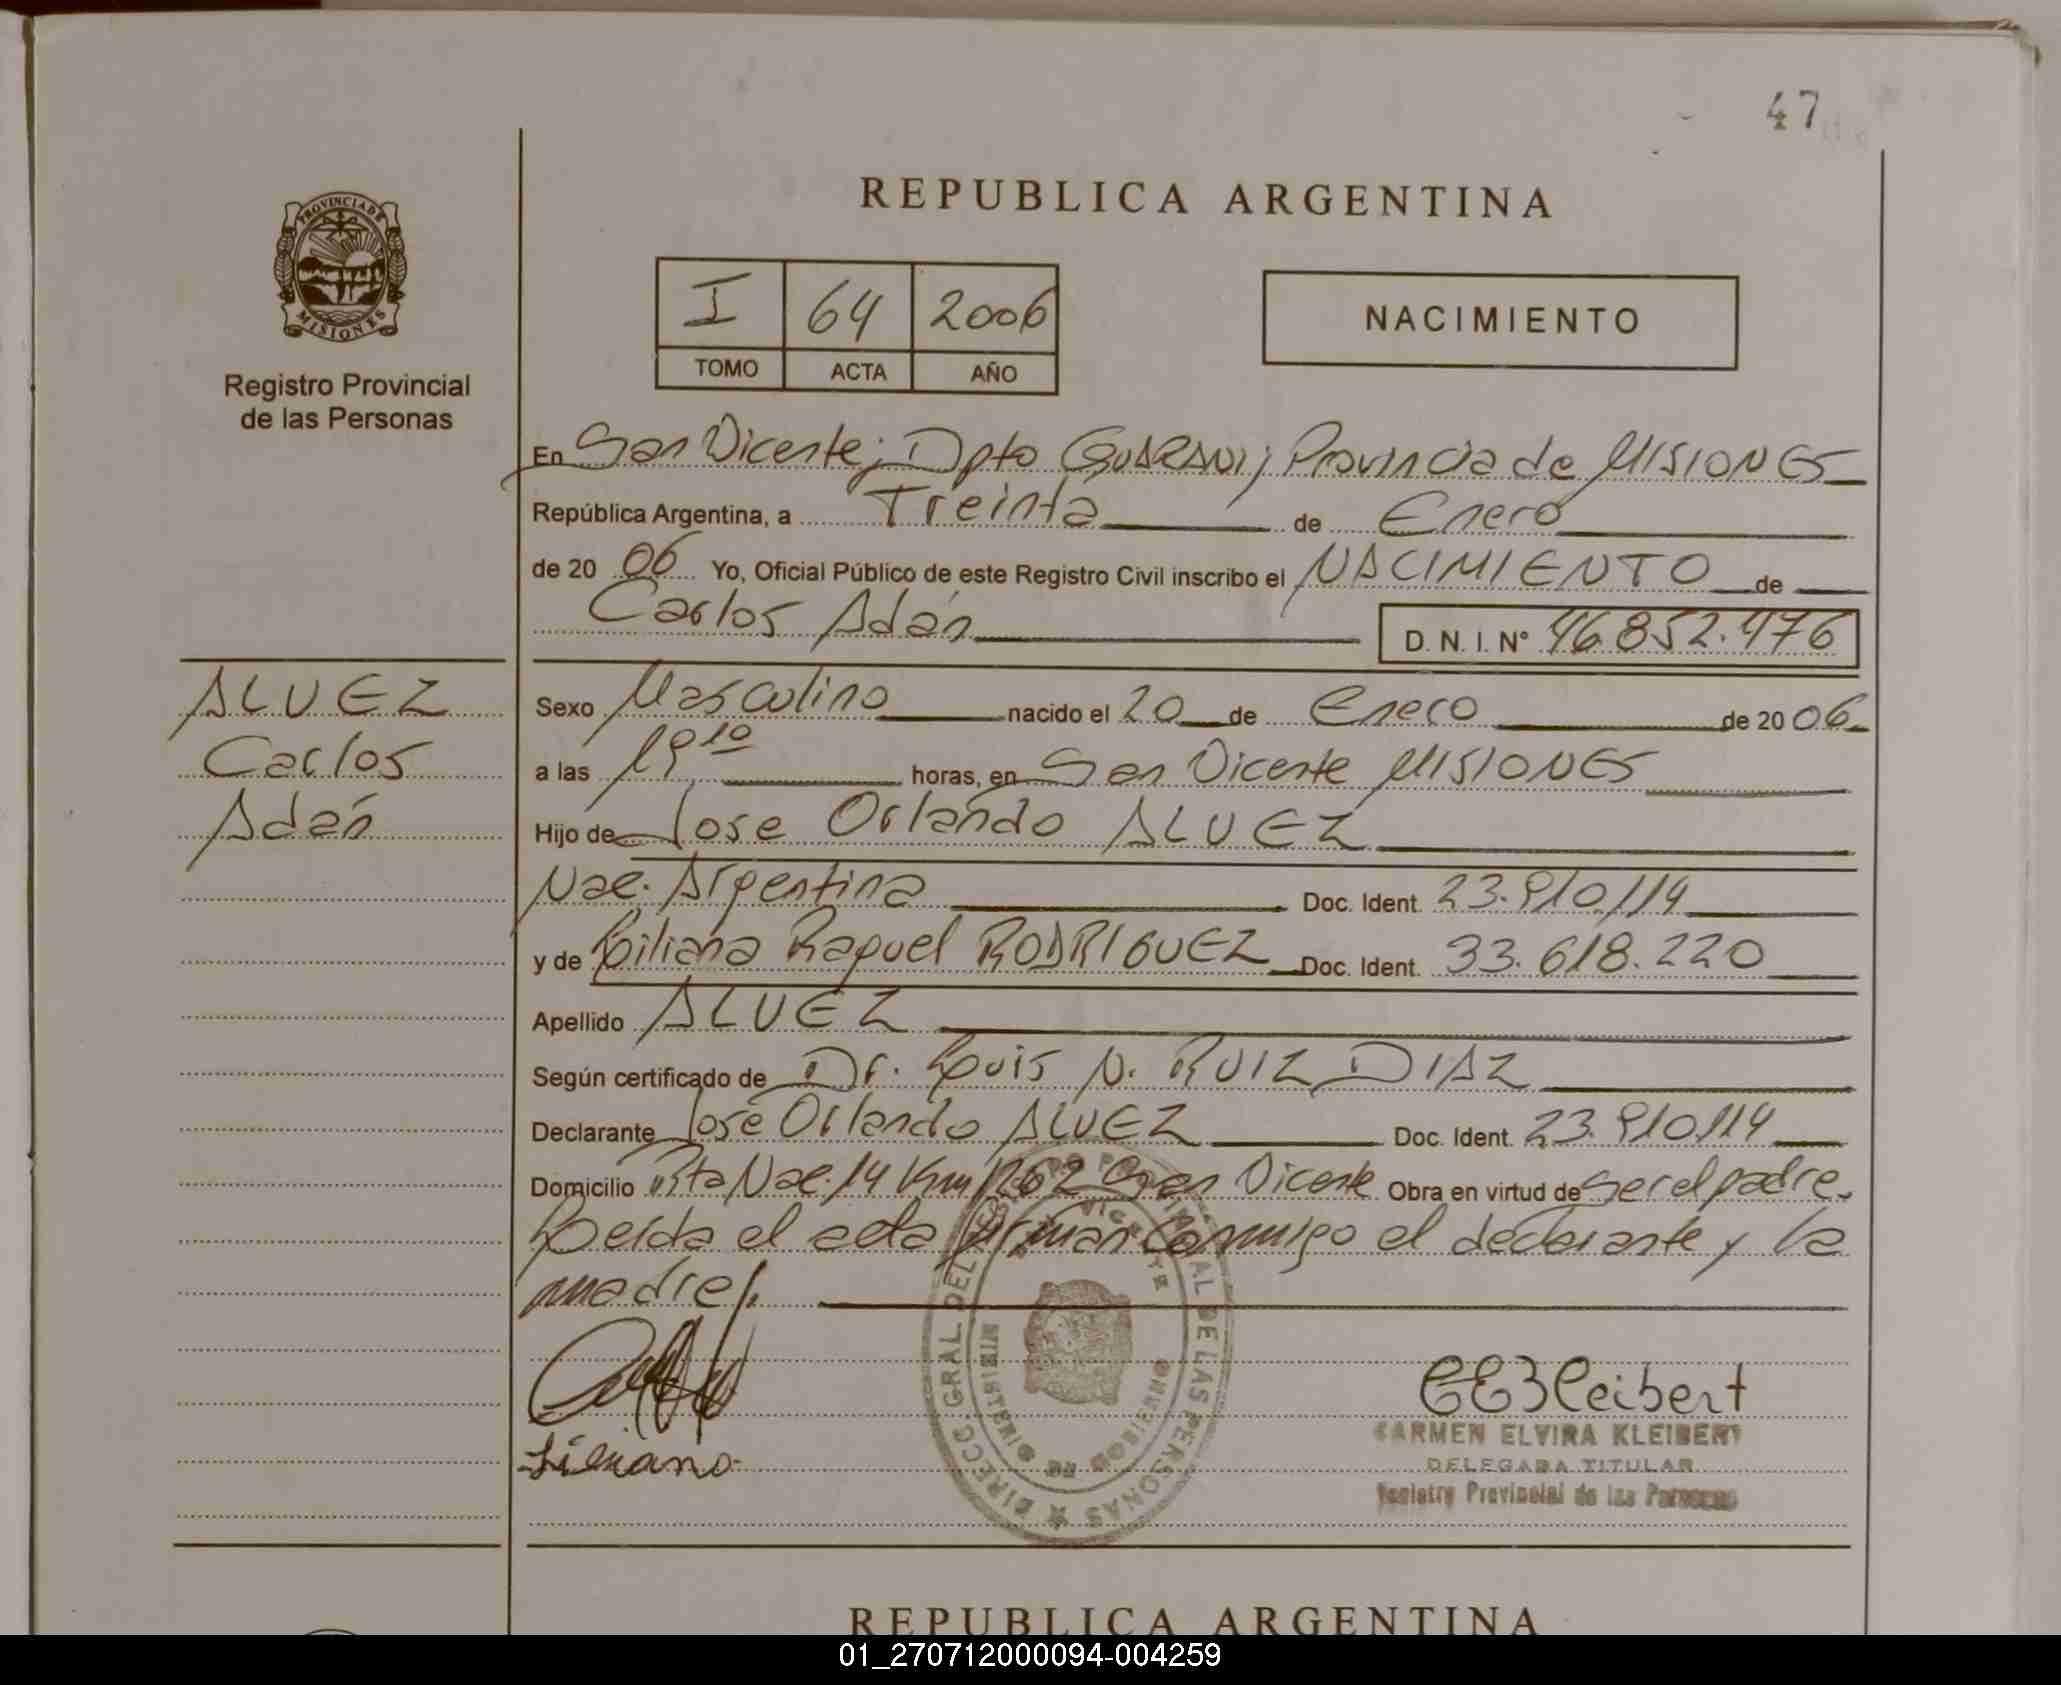 47
PROVINCIA DE
MISIONES
Registro Provincial
de las Personas
REPUBLICA ARGENTINA
I 64 2006
TOMO ACTA AÑO
NACIMIENTO
En San Vicente; Dpto GUARANI; Provincia de MISIONES
República Argentina, a Treinta de Enero
de 20 06 Yo, Oficial Público de este Registro Civil inscribo el NACIMIENTO de
Carlos Adán D.N.I. Nº 46.852.476
ALVEZ
Carlos
Adán
Sexo Masculino nacido el 20 de Enero de 20 06
a las 19 10 horas, en San Vicente MISIONES
Hijo de Jose Orlando ALVEZ
Nac. Argentina Doc. Ident. 23.910.114
y de Liliana Raquel RODRIGUEZ Doc. Ident. 33.618.220
Apellido ALVEZ
Según certificado de Dr. Luis N. RUIZ DIAZ
Declarante José Orlando ALVEZ Doc. Ident. 23.910.114
Domicilio Rta Nac. 14 Km 1262 San Vicente Obra en virtud de ser el padre.
Leída el acta firman conmigo el declarante y la
madre/.
DIRECC. GRAL. DEL REGISTRO PROVINCIAL DE LAS PERSONAS
SAN VICENTE
MINISTERIO DE GOBIERNO
Liliana
CEKleibert
CARMEN ELVIRA KLEIBERT
DELEGADA TITULAR
Registro Provincial de las Personas
REPUBLICA ARGENTINA
01_270712000094-004259